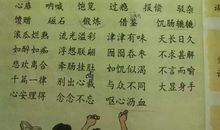 心扉 呐喊 饱览 过瘾 报偿 驳杂
馈赠 磁石 锻炼 借鉴 饥肠辘辘
滚瓜烂熟 流光溢彩 津津有味 天长日久
如醉如痴 浮想联翩 囫囵吞枣 不求甚解
悲欢离合 牵肠挂肚 如饥似渴 不言而喻
千篇一律 别出心裁 与众不同 大显身手
心安理得 念念不忘 呕心沥血